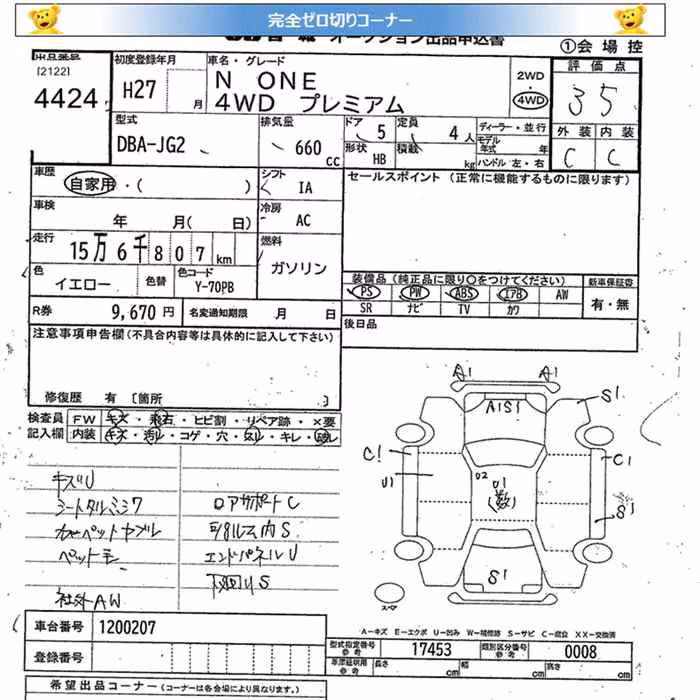 完全ゼロ切りコーナー
オークション出品申込書
①会場控
出品番号
[2122]
4424
初度登録年月
H27 月
車名・グレード
N ONE
4WD プレミアム
2WD
・
4WD
評価点
35
外装 内装
C C
型式
DBA-JG2
排気量
660 cc
ドア 5
定員 4人
形状 HB
積載 kg
ディーラー・並行
モデル年式 年
ハンドル 左・右
車歴
自家用・( )
シフト
IA
セールスポイント (正常に機能するものに限ります)
車検
年 月( 日)
冷房
AC
走行
15万6千807 km
燃料
ガソリン
色
イエロー
色替
色コード
Y-70PB
装備品 (純正品に限り○をつけてください)
PS PW ABS エアB AW
SR ナビ TV カワ
新車保証書
有・無
R券 9,670円
名変通知期限 月 日
後日品
注意事項申告欄(不具合内容等は具体的に記入して下さい)
修復歴 有 [箇所 ]
検査員記入欄
FW キズ・飛石・ヒビ割・リペア跡・×要
内装 キズ・汚レ・コゲ・穴・スレ・キレ・破レ
キズU
シートタルミシワ
カーペットヤブレ
ペット毛
社外AW
ロアサポートC
エンドパネルU
下廻りS
A1 A1
A1S1
S1
C1
U1
U2
U1
(数)
C1
S1
S1
スペア
A-キズ E-エクボ U-凹み W-補修跡 S-サビ C-腐食 XX-交換済
車台番号 1200207
登録番号
型式指定番号 参考 17453
類別区分番号 参考 0008
車庫証明用 参考 長さ cm 幅 cm 高さ cm
希望出品コーナー (コーナーは各会場により異なります)